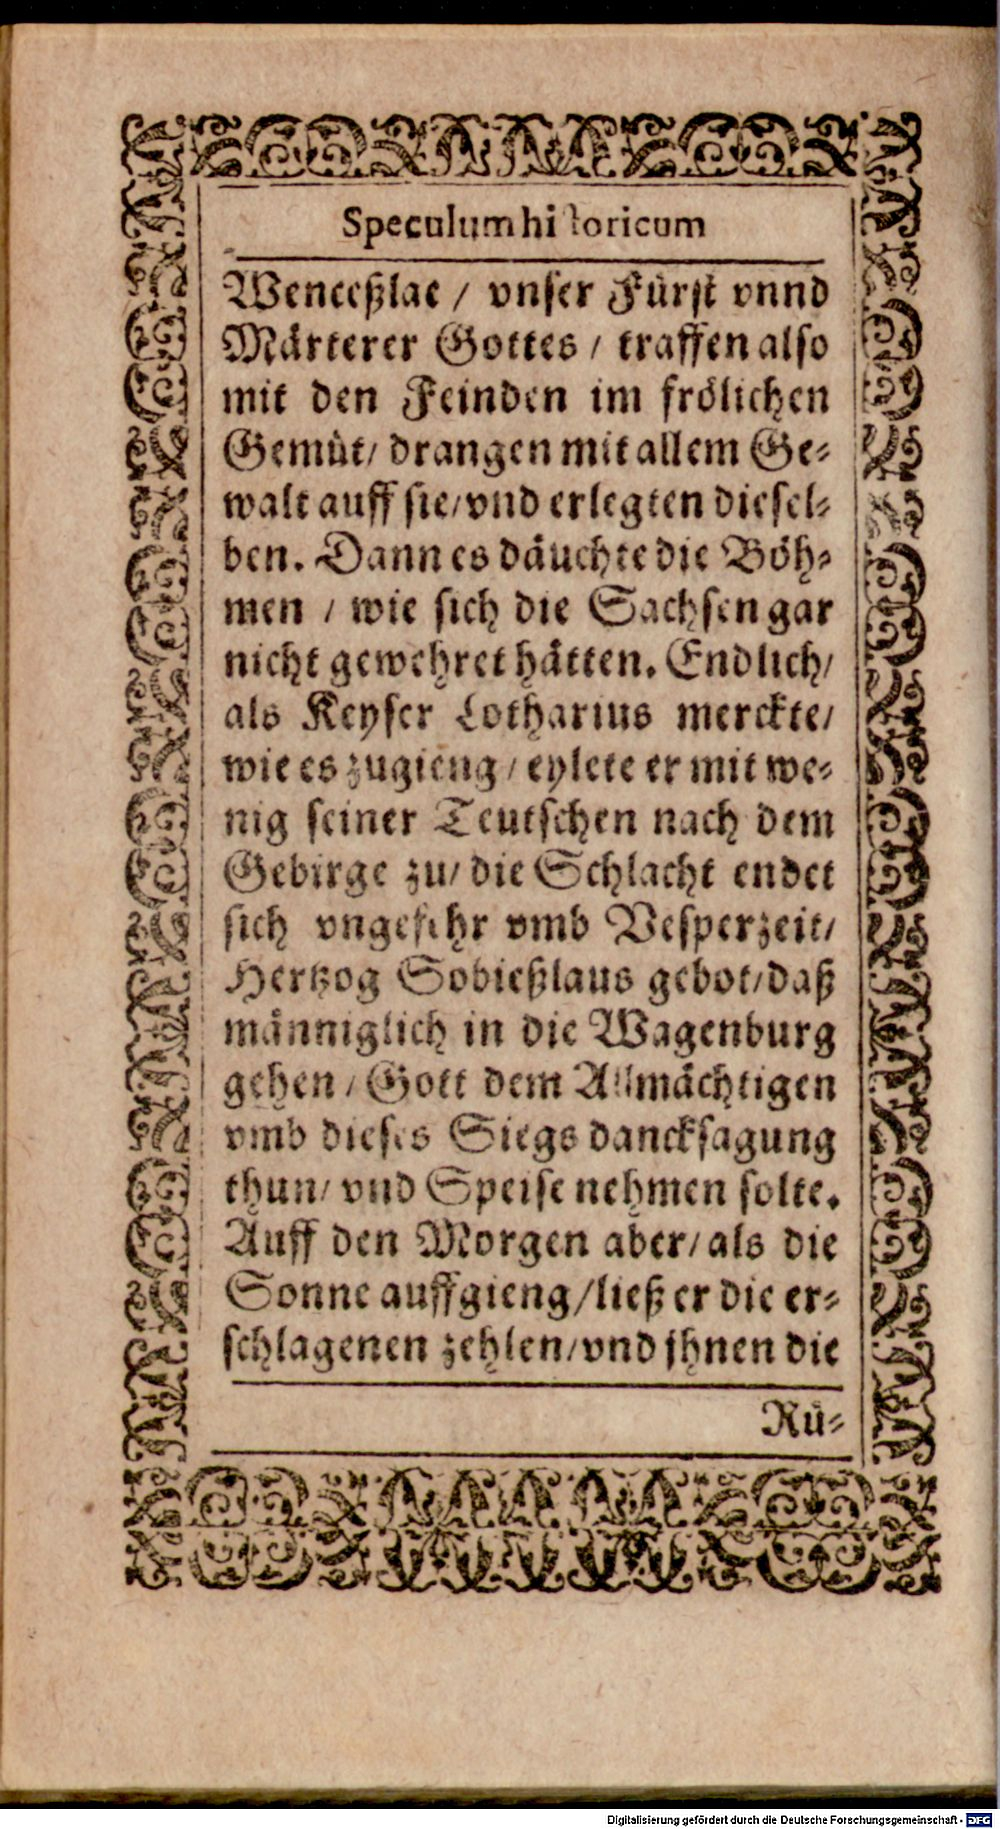 Speculum historicum
Wenceßlae / vnser Fürst vnnd
Märterer Gottes / traffen also
mit den Feinden im frölichen
Gemüt/ drangen mit allem Ge-
walt auff sie/vnd erlegten diesel-
ben. Dann es däuchte die Böh-
men / wie sich die Sachsen gar
nicht gewehret hätten. Endlich/
als Keyser Lotharius merckte/
wie es zugieng / eylete er mit we-
nig seiner Teutschen nach dem
Gebirge zu/ die Schlacht endet
sich vngefehr vmb Vesperzeit/
Hertzog Sobießlaus gebot/daß
männiglich in die Wagenburg
gehen / Gott dem Allmächtigen
vmb dieses Siegs dancksagung
thun/ vnd Speise nehmen solte.
Auff den Morgen aber/ als die
Sonne auffgieng/ließ er die er-
schlagenen zehlen/vnd jhnen die
Rü-
Digitalisierung gefördert durch die Deutsche Forschungsgemeinschaft - DFG